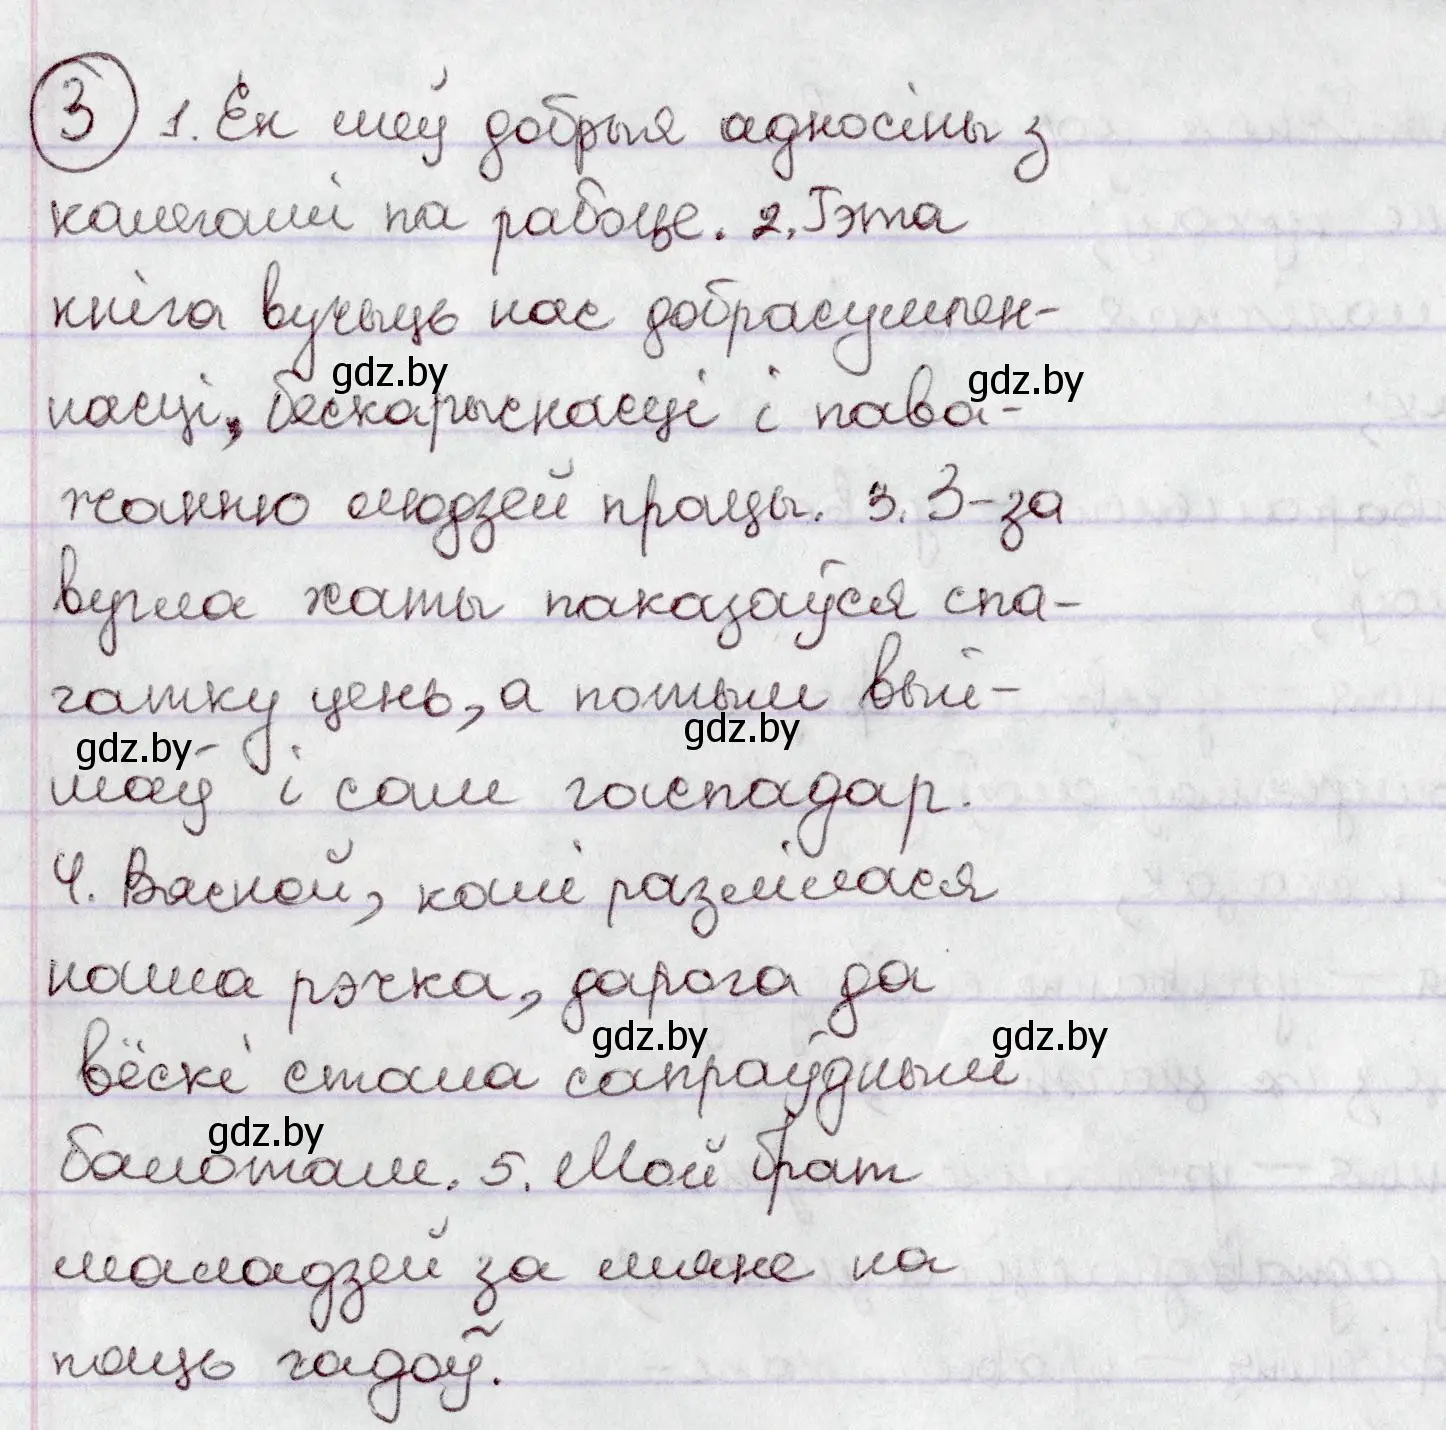 3 1. Ён меў добрыя адносіны з
калегамі па рабоце. 2. Гэта
кніга вучыць нас добрасумлен-
насці, бескарыснасці і пава-
жанню людзей працы. 3. З-за
вугла хаты паказаўся спа-
чатку цень, а потым вый-
шаў і сам гаспадар.
4. Вясной, калі разлілася
наша рэчка, дарога да
вёскі стала сапраўдным
балотам. 5. Мой брат
маладзей за мяне на
пяць гадоў.
gdz.by
gdz.by
gdz.by
gdz.by
gdz.by
gdz.by
gdz.by